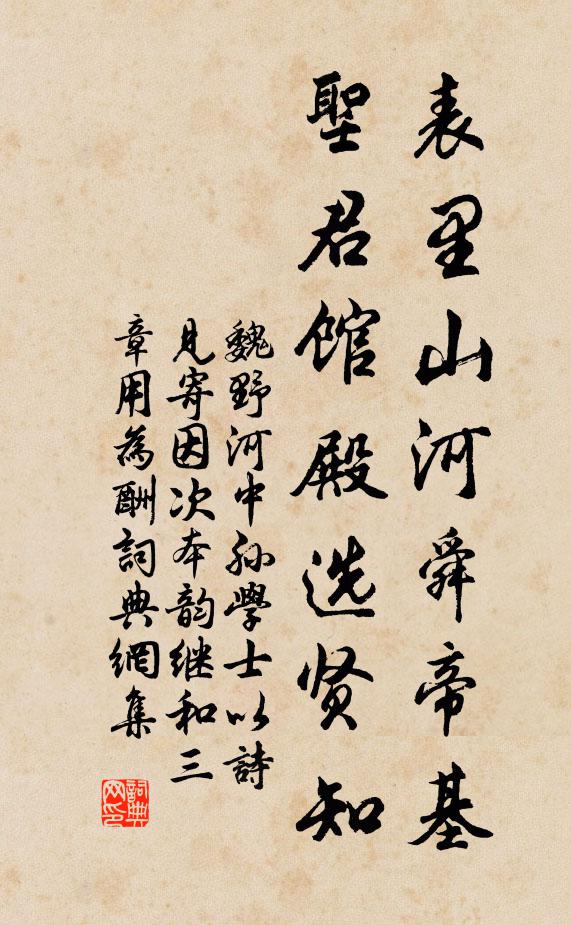 表里山河舜帝基
聖君館殿选贤知
魏野河中孙學士以詩
見寄因次本韵继和三
章用為酬詞典網集
詞典
网印